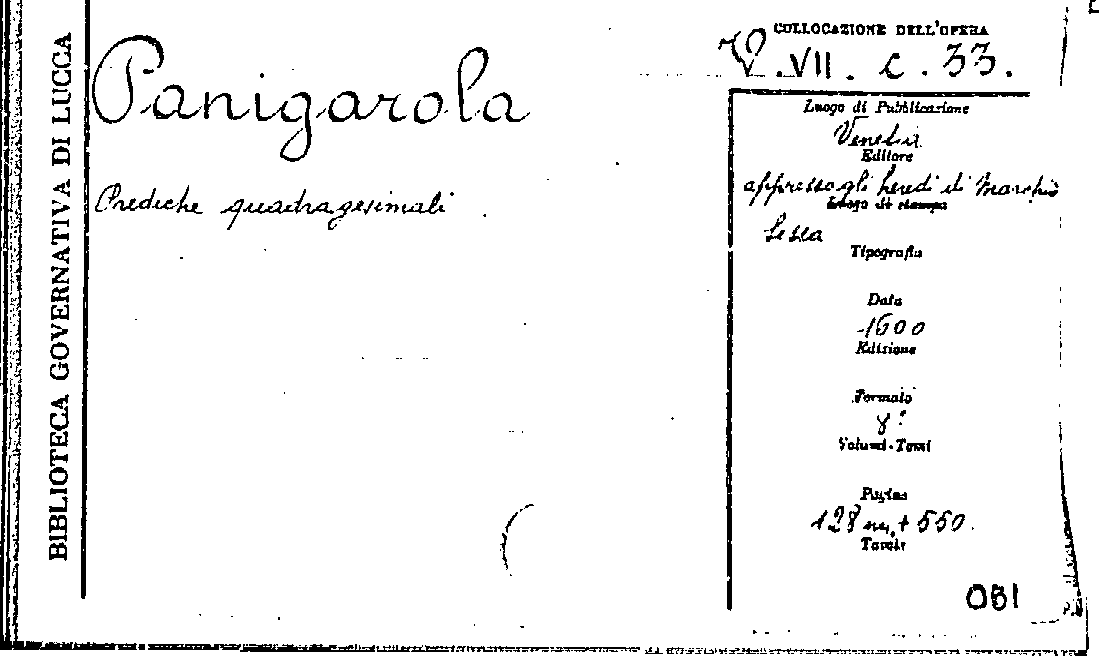 BIBLIOTECA GOVERNATIVA DI LUCCA
Panigarola
Prediche quadragesimali
COLLOCAZIONE DELL'OPERA
VII. c. 33.
Luogo di Pubblicazione
Venetia
Editore
appresso gli heredi di Marchio
Luogo di stampa
Sessa
Tipografia
Data
1600
Edizione
Formato
8°
Volumi-Tomi
Pagine
128 nn. + 550.
Tavole
061